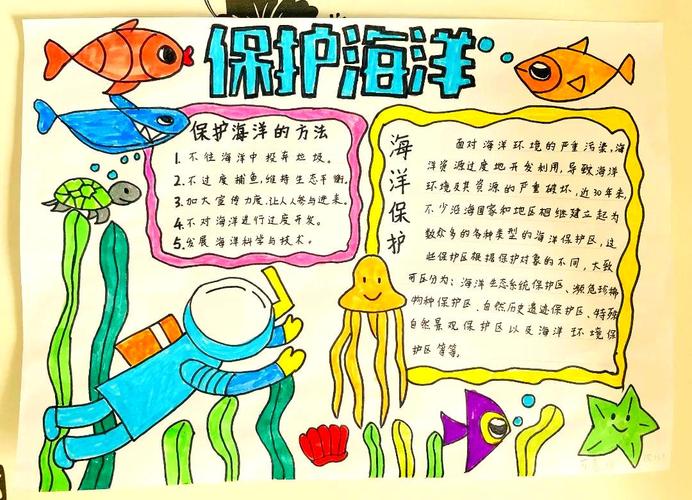 保护海洋
保护海洋的方法
1. 不往海洋中投弃垃圾。
2. 不过度捕鱼,维持生态平衡。
3. 加大宣传力度,让人人参与进来。
4. 不对海洋进行过度开发。
5. 发展海洋科学与技术。
海洋保护
面对海洋环境的严重污染,海
洋资源过度地开发利用,导致海洋
环境及其资源的严重破坏,近30年来,
不少沿海国家和地区相继建立起为
数众多的各种类型的海洋保护区,这
些保护区根据保护对象的不同,大致
可区分为:海洋生态系统保护区、濒危珍稀
物种保护区、自然历史遗迹保护区、特殊
自然景观保护区以及海洋环境保
护区等等。